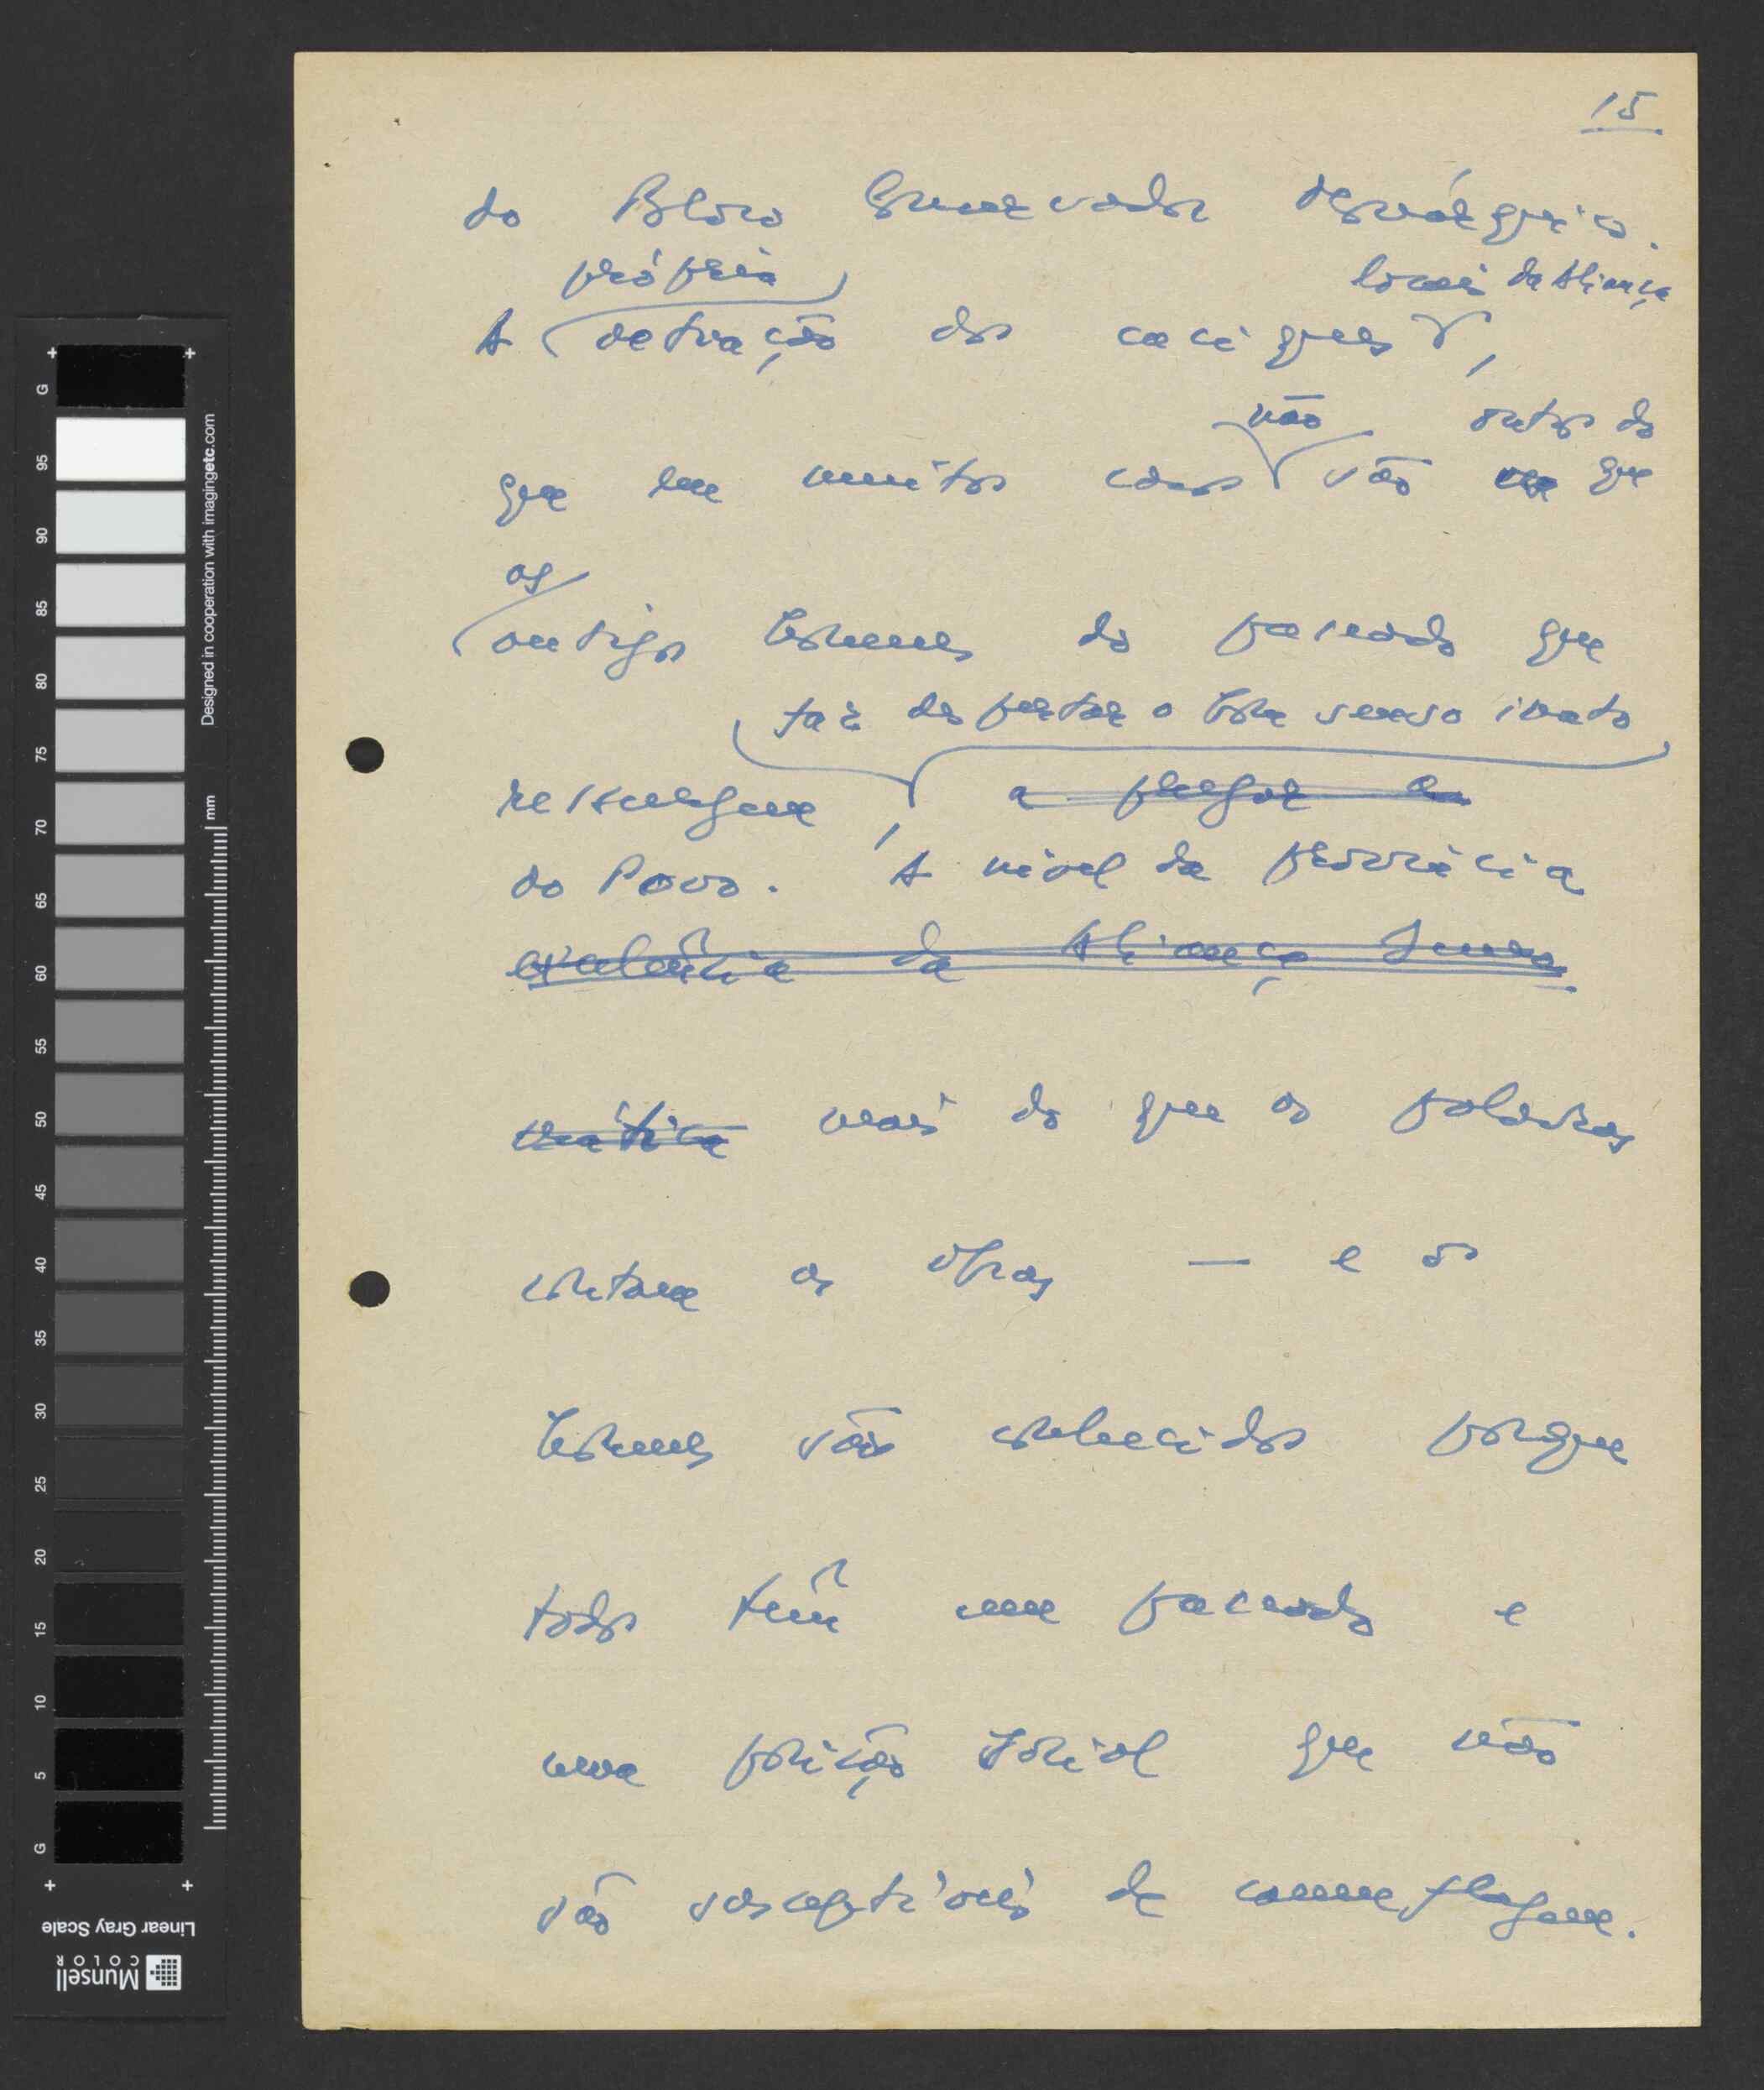 15
do Bloco Conservador
própria locais da Aliança
A actuação dos caciques,
não outros do
que em muitos casos são que
os
antigos homens do passado que
faz despertar o bom senso inato
ressurgem, a pregar
do Povo. A nível da província
da Aliança
mais do que as palavras
contam as obras — e os
homens são conhecidos porque
todos têm um passado e
uma posição social que não
são susceptíveis de camuflagem.
G 95 90 85 80 75 70 65 60 55 50 45 40 35 30 25 20 15 10 5 G
mm
Designed in cooperation with imagingetc.com
Linear Gray Scale
Munsell
COLOR